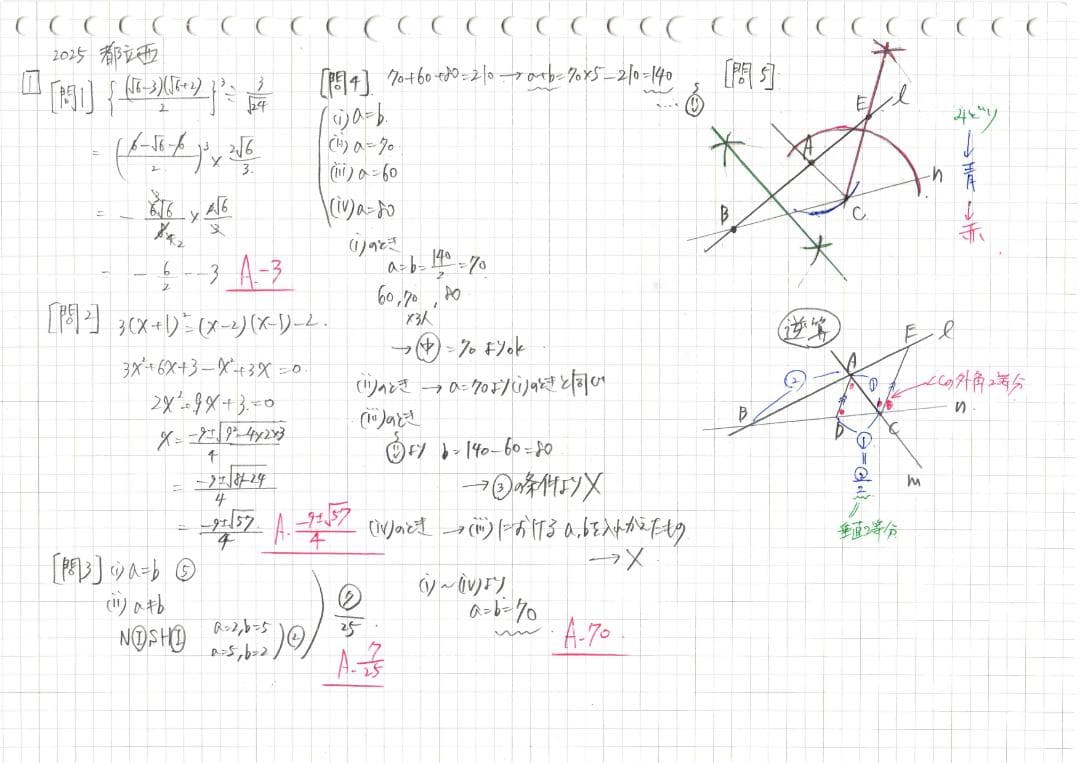 2025 都立西
1
[問1] { (√6-3)(√6+2) / 2 }³ ÷ 3/√24
= ( (6-√6-6) / 2 )³ × 2√6/3
= - 6√6/8 × 2√6/3
= - 6/2 = -3 A. -3
[問2] 3(x+1)²=(x-2)(x-1)-2.
3x²+6x+3-x²+3x=0.
2x²+9x+3=0
x = (-9±√(9²-4×2×3)) / 4
= (-9±√(81-24)) / 4
= (-9±√57) / 4 A. (-9±√57) / 4
[問3] (i) a=b ⑤
(ii) a≠b
NⒾSHⒾ a=2, b=5
a=5, b=2 ②
⑦/25
A. 7/25
[問4] 70+60+80=210 → a+b=70×5-210=140
… (ii)
(i) a=b.
(ii) a=70
(iii) a=60
(iv) a=80
(i)のとき
a=b=140/2=70
60, 70, 80
×3人
→ 中=70よりok
(ii)のとき → a=70より(i)のときと同じ
(iii)のとき
(ii)より b=140-60=80
→ ③の条件よりX
(iv)のとき → (iii)におけるa,bを入れかえたもの
→ X
(i)～(iv)より
a=b=70
A. 70
[問5]
E l
A
n
B C
みどり
↓
青
↓
赤
逆算
E l
A
② ①
∠Cの外角2等分
B n
D C
①
=
②/2
m
=
垂直2等分